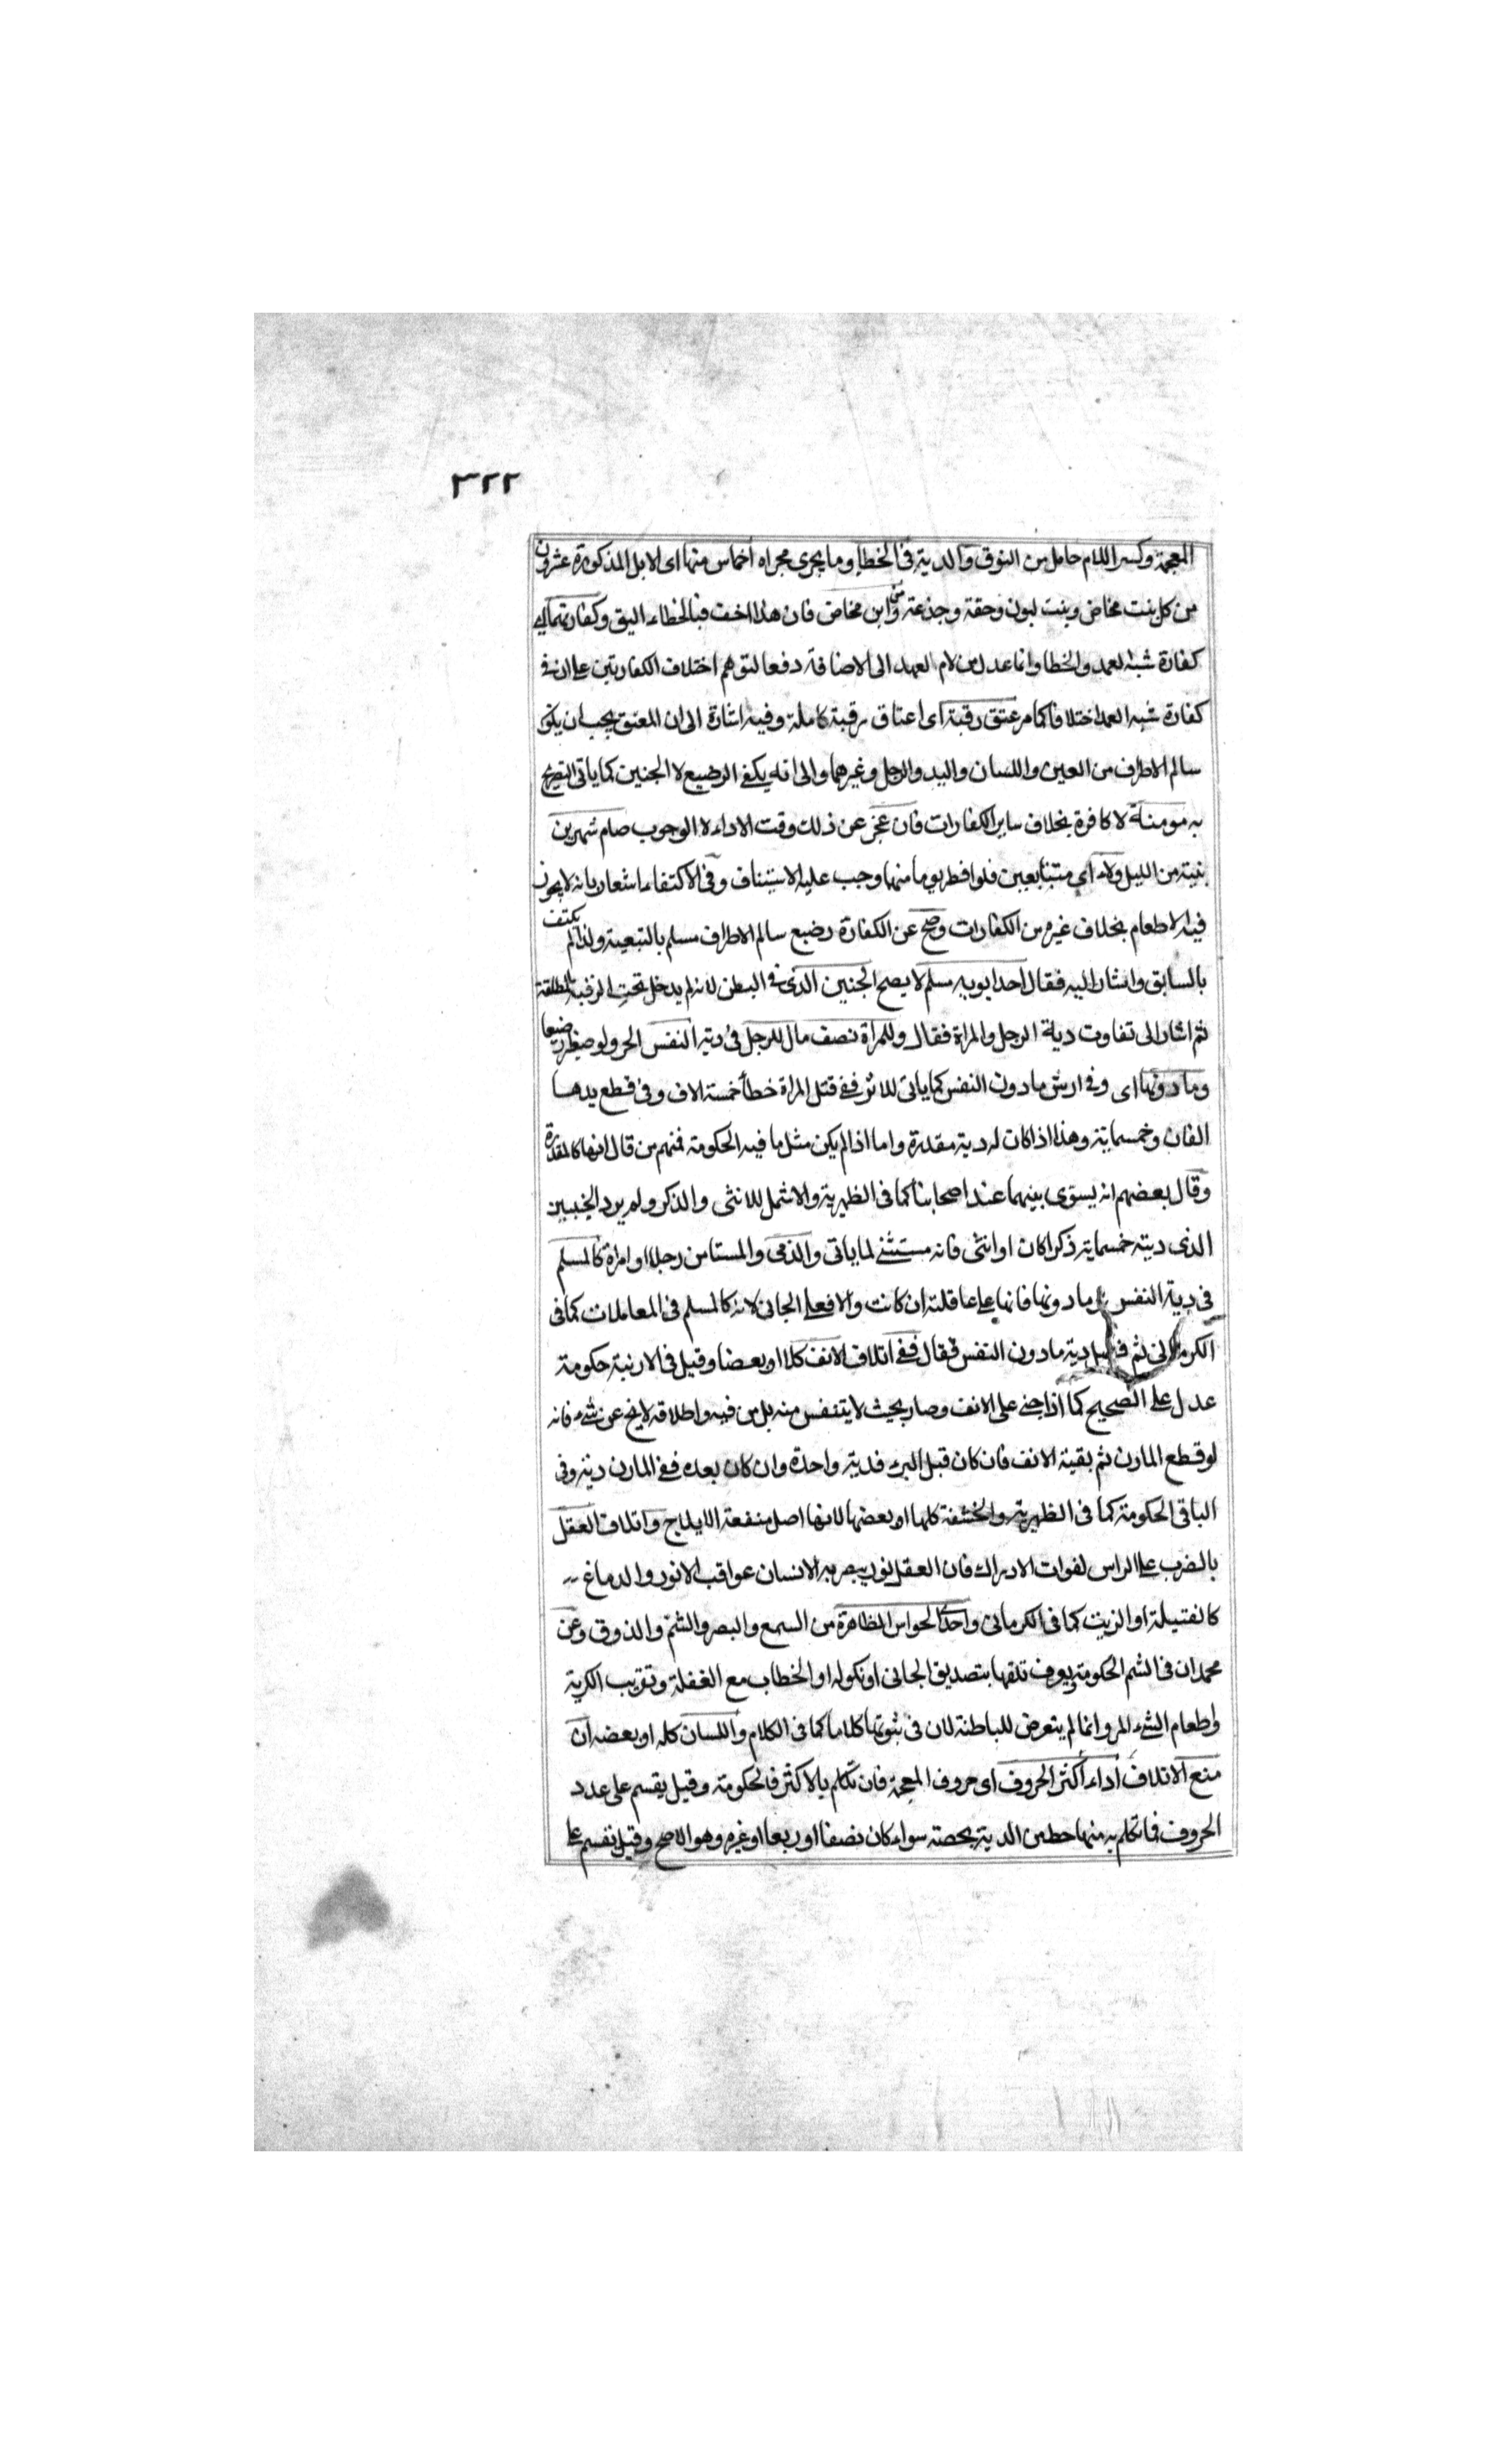 ٣٢٢
المعجمة وكسر اللام حامل من النوق والدية فى الخطأ وما يجرى مجراه اخماس منها اى الابل المذكورة عشرون
من كل بنت مخاض وبنت لبون وحقة وجذعة ومن ابن مخاض فان هذا اخف فبالخطاء اليق وكفارتهما اى
كفارة شبه العمد والخطا وانما عدل من لام العهد الى الاضافة دفعا لتوهم اختلاف الكفارتين على ان فى
كفارة شبه العمد اختلافا كما مر عتق رقبة اى اعتاق رقبة كاملة وفيه اشارة الى ان المعتق يجب ان يكون
سالم الاطراف من العين واللسان واليد والرجل وغيرهما والى انه يكفى الرضيع لا الجنين كما ياتى التصريح
به مومنة لا كافرة بخلاف ساير الكفارات فان عجز عن ذلك وقت الاداء لا الوجوب صام شهرين
بنية من الليل ولاء اى متتابعين فلو افطر يوما منهما وجب عليه الاستيناف وفى الاكتفاء اشعار بانه لا يجوز
فيه الاطعام بخلاف غيره من الكفارات وصح عن الكفارة رضيع سالم الاطراف مسلم بالتبعية ولذا لم يكتف
بالسابق واشار اليه فقال احد ابويه مسلم لا يصح الجنين الذى فى البطن لانه لم يدخل تحت الرقبة المطلقة
ثم اشار الى تفاوت دية الرجل والمراة فقال وللمراة نصف مال للرجل فى دية النفس الحر ولو صغير رضيعا
وما دونها اى وفى ارش ما دون النفس كما ياتى للاثر ففى قتل المراة خطأ خمسة الاف وفى قطع يدها
الفان وخمسماية وهذا اذا كان له دية مقدرة واما اذا لم يكن مثل ما فيه الحكومة فمنهم من قال انها كالمقدرة
وقال بعضهم انه يسوى بينهما عند اصحابنا كما فى الظهيرية والاشمل للانثى والذكر ولم يرد الجنين
الذى ديته خمسماية ذكرا كان او انثى فانه مستثنى لما ياتى والذمى والمستامن رجلا او امراة كالمسلم
فى دية النفس وما دونها فانها على عاقلته ان كانت والا فعلى الجانى لانه كالمسلم فى المعاملات كما فى
الكرمانى ثم دية ما دون النفس فقال ففى اتلاف الانف كلا او بعضا وقيل فى الارنبة حكومة
عدل على الصحيح كما اذا جنى على الانف وصار بحيث لا يتنفس منه بل من فيه واطلاقه لا يخ عن شىء فانه
لو قطع المارن ثم بقية الانف فان كان قبل البرء فدية واحدة وان كان بعده ففى المارن دية وفى
الباقى الحكومة كما فى الظهيرية والحشفة كلها او بعضها لانها اصل منفعة الايلاج واتلاف العقل
بالضرب على الراس لفوات الادراك فان العقل نور يبصر به الانسان عواقب الامور والدماغ
كالفتيلة او الزيت كما فى الكرمانى واحد الحواس الظاهرة من السمع والبصر والشم والذوق وعن
محمد ان فى الشم الحكومة ويعرف تلفها بتصديق الجانى او نكوله او الخطاب مع الغفلة وتقريب الكرية
واطعام الشىء المر وانما لم يتعرض للباطنة لان فى ثبوتها كلاما كما فى الكلام واللسان كله او بعضه ان
منع الاتلاف أداء أكثر الحروف اى حروف المعجمة فان تكلم بالاكثر فالحكومة وقيل يقسم على عدد
الحروف فما تكلم به منها حط من الدية بحصته سواء كان نصفا او ربعا او غيره وهو الاصح وقيل تقسم على